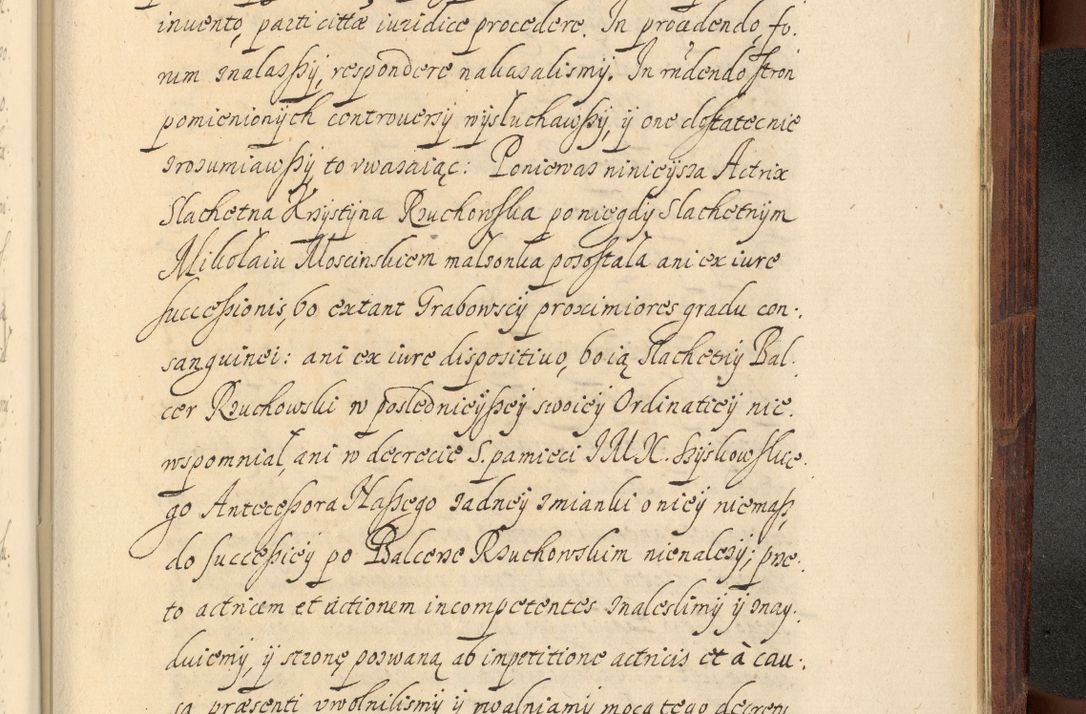 invento, parti cittæ iuridice procedere. In procedendo, fo.
rum znalasszÿ, respondere nakazalismÿ. In rn̄dendo stron
pomienionÿch controuersÿ wÿsłuchawszÿ, ÿ one dostatecnie
zrozumiawszÿ to vwazaiąc: Poniewaz ninieÿsza Actrix
Slachetna Krzÿstÿna Rzuchowska poniegdÿ Slachetnÿm
Mikołaiu Moscinskiem małzonka pozostała ani ex iure
successionis, bo extant Grabowscÿ proximiores gradu con-
sanguinei: ani ex iure dispositiuo, bo ią Slachetnÿ Bal-
cer Rzuchowski w poslednieÿszeÿ swoieÿ Ordinatieÿ nie
wspomniał, ani w decrecie S. pamieci JMX. Szÿskowskie-
go Antecessora Naszego zadneÿ zmianki o nieÿ niemasz,
do successieÿ po Balcerze Rzuchowskim nienalezÿ; prze-
to actricem et actionem incompetentes znaleslimÿ ÿ znaÿ-
duiemÿ, ÿ stronę pozwaną ab impetitione actricis et à cau-
sa præsenti vwolnilismÿ ÿ vwalniamÿ mocą tego decretu